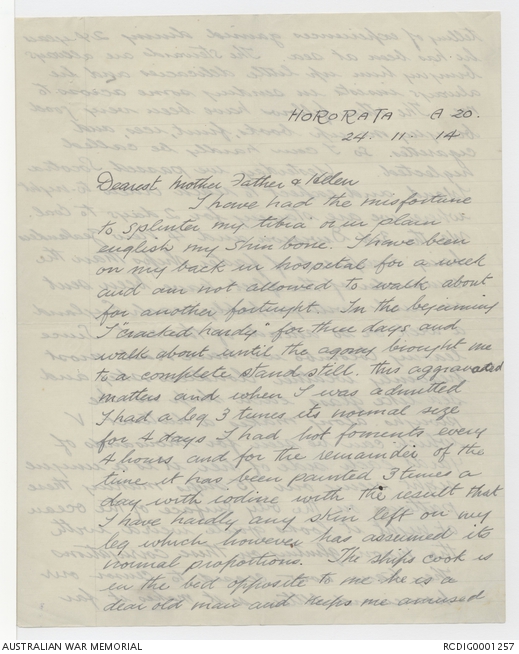 HORORATA A 20.
24. 11. 14
Dearest Mother Father & Helen
I have had the misfortune
to splinter my tibia or in plain
english my shin bone. I have been
on my back in hospital for a week
and am not allowed to walk about
for another fortnight. In the beginning
I "cracked hardy" for three days and
walk about until the agony brought me
to a complete stand still. this aggravated
matters and when I was admitted
I had a leg 3 times its normal size
for 4 days I had hot foments every
4 hours and for the remainder of the
time it has been painted 3 times a
day with iodine with the result that
I have hardly any skin left on my
leg which however has assumed its
normal proportions. The ships cook is
in the bed opposite to me he is a
dear old man and keeps me amused
AUSTRALIAN WAR MEMORIAL
RCDIG0001257